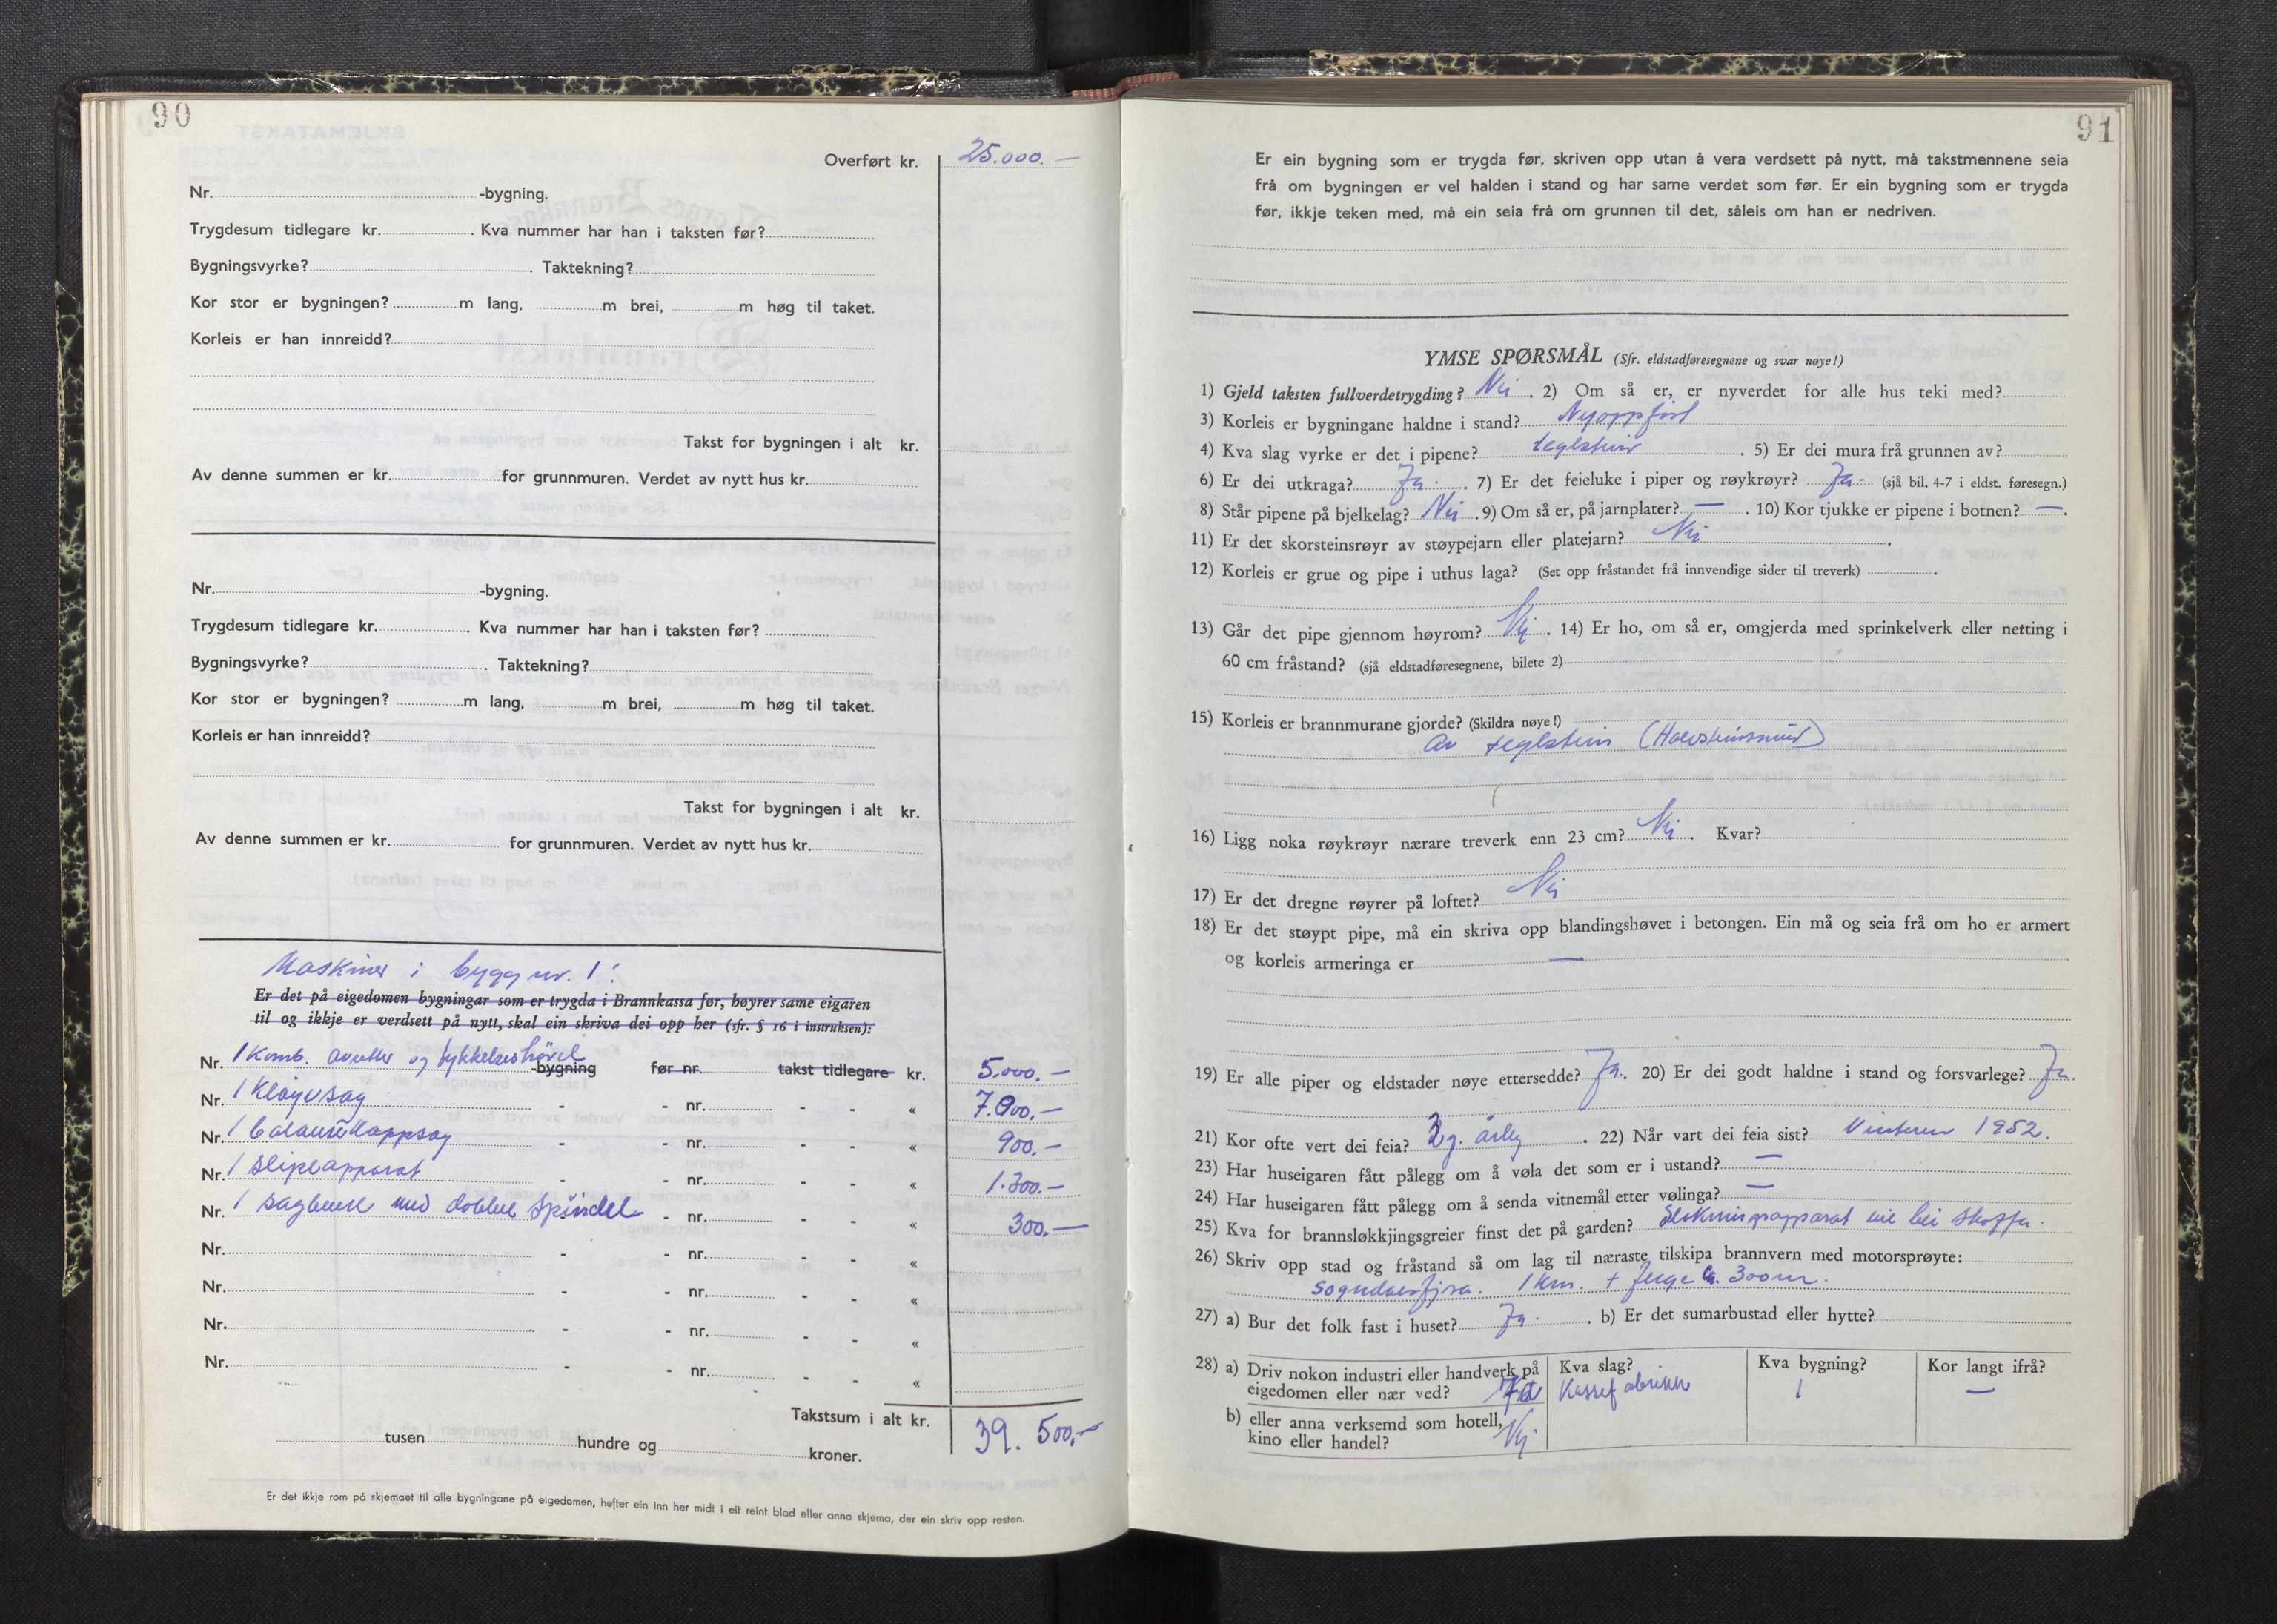 90
Overført kr. 25.000.—
Nr. -bygning.
Trygdesum tidlegare kr. . Kva nummer har han i taksten før?
Bygningsvyrke? . Taktekning?
Kor stor er bygningen? m lang, m brei, m høg til taket.
Korleis er han innreidd?
Takst for bygningen i alt kr.
Av denne summen er kr. for grunnmuren. Verdet av nytt hus kr.
Nr. -bygning.
Trygdesum tidlegare kr. . Kva nummer har han i taksten før?
Bygningsvyrke? . Taktekning?
Kor stor er bygningen? m lang, m brei, m høg til taket.
Korleis er han innreidd?
Takst for bygningen i alt kr.
Av denne summen er kr. for grunnmuren. Verdet av nytt hus kr.
Maskiner i bygg nr. 1:
Er det på eigedomen bygningar som er trygda i Brannkassa før, høyrer same eigaren
til og ikkje er verdsett på nytt, skal ein skriva dei opp her (sfr. § 16 i instruksen):
Nr. 1 Komb. avretter og tykkelseshövel -bygning før nr. takst tidlegare kr. 5.000.—
Nr. 1 Kløyvsag - - nr. - - « 7.000.—
Nr. 1 balansekappsag - - nr. - - « 900.—
Nr. 1 slipeapparat - - nr. - - « 1.300.—
Nr. 1 sagbenk med dobbel spindel - nr. - - « 300.—
Nr. - - nr. - - «
Nr. - - nr. - - «
Nr. - - nr. - - «
Nr. - - nr. - - «
Takstsum i alt kr. 39.500,—
tusen hundre og kroner.
Er det ikkje rom på skjemaet til alle bygningane på eigedomen, hefter ein inn her midt i eit reint blad eller anna skjema, der ein skriv opp resten.
91
Er ein bygning som er trygda før, skriven opp utan å vera verdsett på nytt, må takstmennene seia
frå om bygningen er vel halden i stand og har same verdet som før. Er ein bygning som er trygda
før, ikkje teken med, må ein seia frå om grunnen til det, såleis om han er nedriven.
YMSE SPØRSMÅL (Sfr. eldstadføresegnene og svar nøye!)
1) Gjeld taksten fullverdetrygding? Nei . 2) Om så er, er nyverdet for alle hus teki med?
3) Korleis er bygningane haldne i stand? Nyoppført
4) Kva slag vyrke er det i pipene? teglstein . 5) Er dei mura frå grunnen av?
6) Er dei utkraga? Ja . 7) Er det feieluke i piper og røykrøyr? Ja - (sjå bil. 4-7 i eldst. føresegn.)
8) Står pipene på bjelkelag? Nei . 9) Om så er, på jarnplater? — . 10) Kor tjukke er pipene i botnen? — .
11) Er det skorsteinsrøyr av støypejarn eller platejarn? Nei .
12) Korleis er grue og pipe i uthus laga? (Set opp fråstandet frå innvendige sider til treverk) .
13) Går det pipe gjennom høyrom? Nei . 14) Er ho, om så er, omgjerda med sprinkelverk eller netting i
60 cm fråstand? (sjå eldstadføresegnene, bilete 2)
15) Korleis er brannmurane gjorde? (Skildra nøye!)
Av teglstein (Halvsteinsmur)
16) Ligg noka røykrøyr nærare treverk enn 23 cm? Nei . Kvar?
17) Er det dregne røyrer på loftet? Nei
18) Er det støypt pipe, må ein skriva opp blandingshøvet i betongen. Ein må og seia frå om ho er armert
og korleis armeringa er —
19) Er alle piper og eldstader nøye ettersedde? Ja . 20) Er dei godt haldne i stand og forsvarlege? Ja.
21) Kor ofte vert dei feia? 2 g. årleg . 22) Når vart dei feia sist? Vinteren 1952.
23) Har huseigaren fått pålegg om å vøla det som er i ustand? —
24) Har huseigaren fått pålegg om å senda vitnemål etter vølinga? —
25) Kva for brannsløkkjingsgreier finst det på garden? Slökningsapparat vil bli skaffa.
26) Skriv opp stad og fråstand så om lag til næraste tilskipa brannvern med motorsprøyte:
Sogndalsfjøra. 1 km. + ferge ca. 300 m.
27) a) Bur det folk fast i huset? Ja . b) Er det sumarbustad eller hytte?
28) a) Driv nokon industri eller handverk på eigedomen eller nær ved? Ja
Kva slag? Kassefabrikk
Kva bygning? 1
Kor langt ifrå? —
b) eller anna verksemd som hotell, kino eller handel? Nei